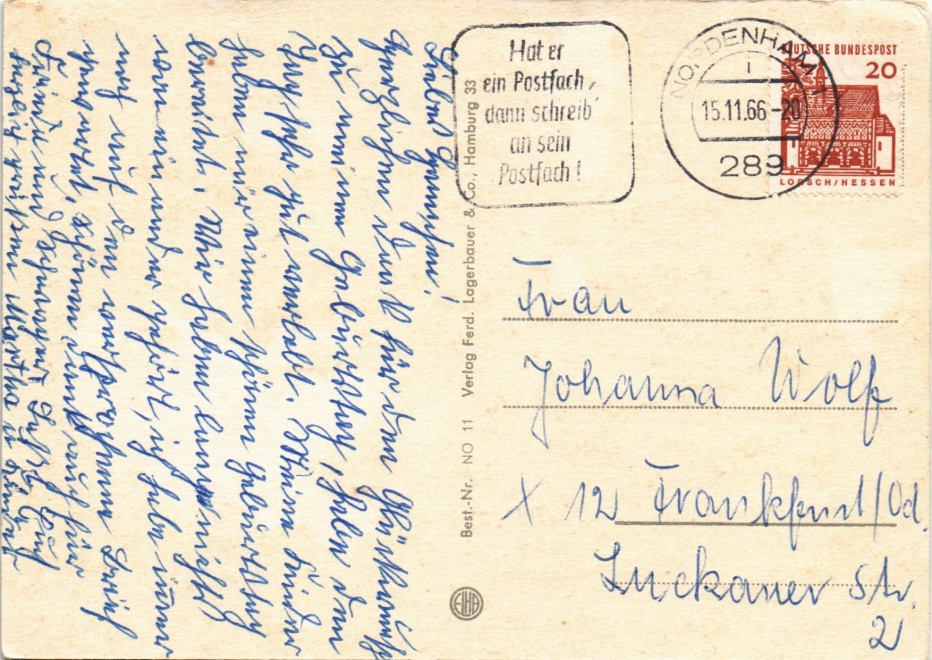 Liebes Hannchen!
Herzlichen Dank für die Glückwünsche
zu meinem Geburtstag, habe den
Tag sehr gut verlebt. Meine Kinder
haben mir einen schönen Geburtstag
bereitet. Wir haben lange nichts
von einander gehört, ich habe immer
noch auf den versprochenen Brief
gewartet. Schönen Dank auch für
Martha u. Kinder
Best.-Nr. NO 11 Verlag Ferd. Lagerbauer & Co., Hamburg 33
EIHB
Hat er
ein Postfach,
dann schreib'
an sein
Postfach!
NORDENHAM 1
i
15.11.66-20
289
DEUTSCHE BUNDESPOST
20
LORSCH/HESSEN
Frau
Johanna Wolf
X 12 Frankfurt/Od.
Luckauer Str.
2